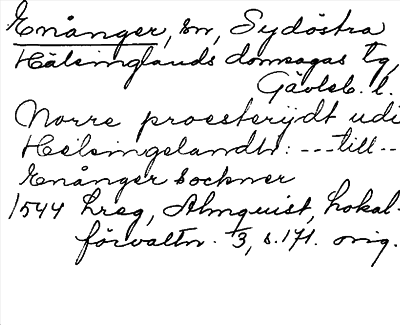 Enånger, sn, Sydöstra
Hälsinglands domsagas tg,
Gävleb. l.
Norre proesterijdt udi
Helsingelandtr: --- till --
Enånger sockner
1544 Lreg, Almquist, Lokal-
förvaltn. 1/3, s. 171. orig.